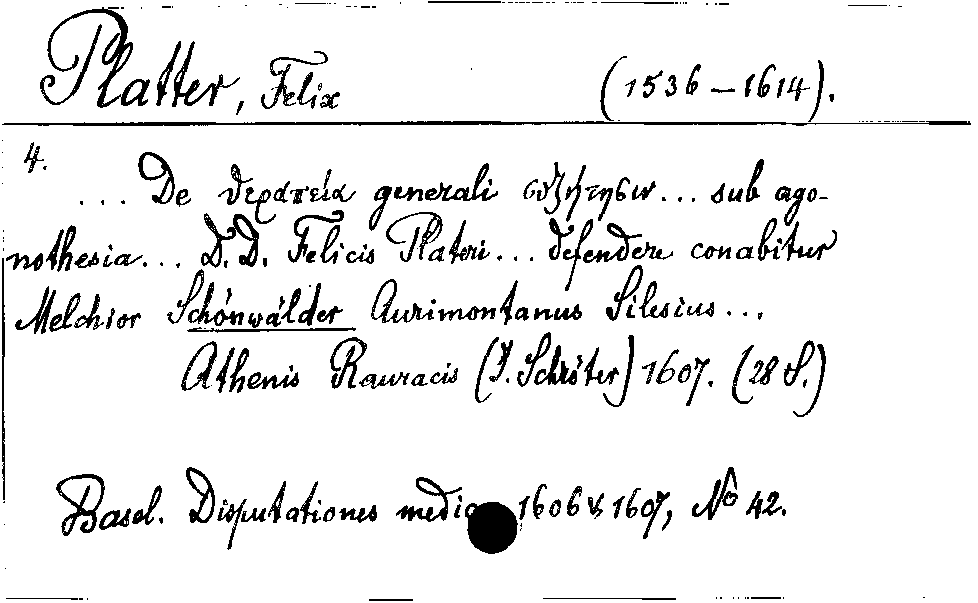 Platter, Felix (1536 – 1614).
4.
... De θεραπεία generali συζήτησιν ... sub ago-
nothesia ... D. D. Felicis Plateri ... defendere conabitur
Melchior Schönwälder Aurimontanus Silesius ...
Athenis Rauracis (J. Schröter) 1607. (28 S.)
Basel. Disputationes medic 1606 & 1607, No 42.